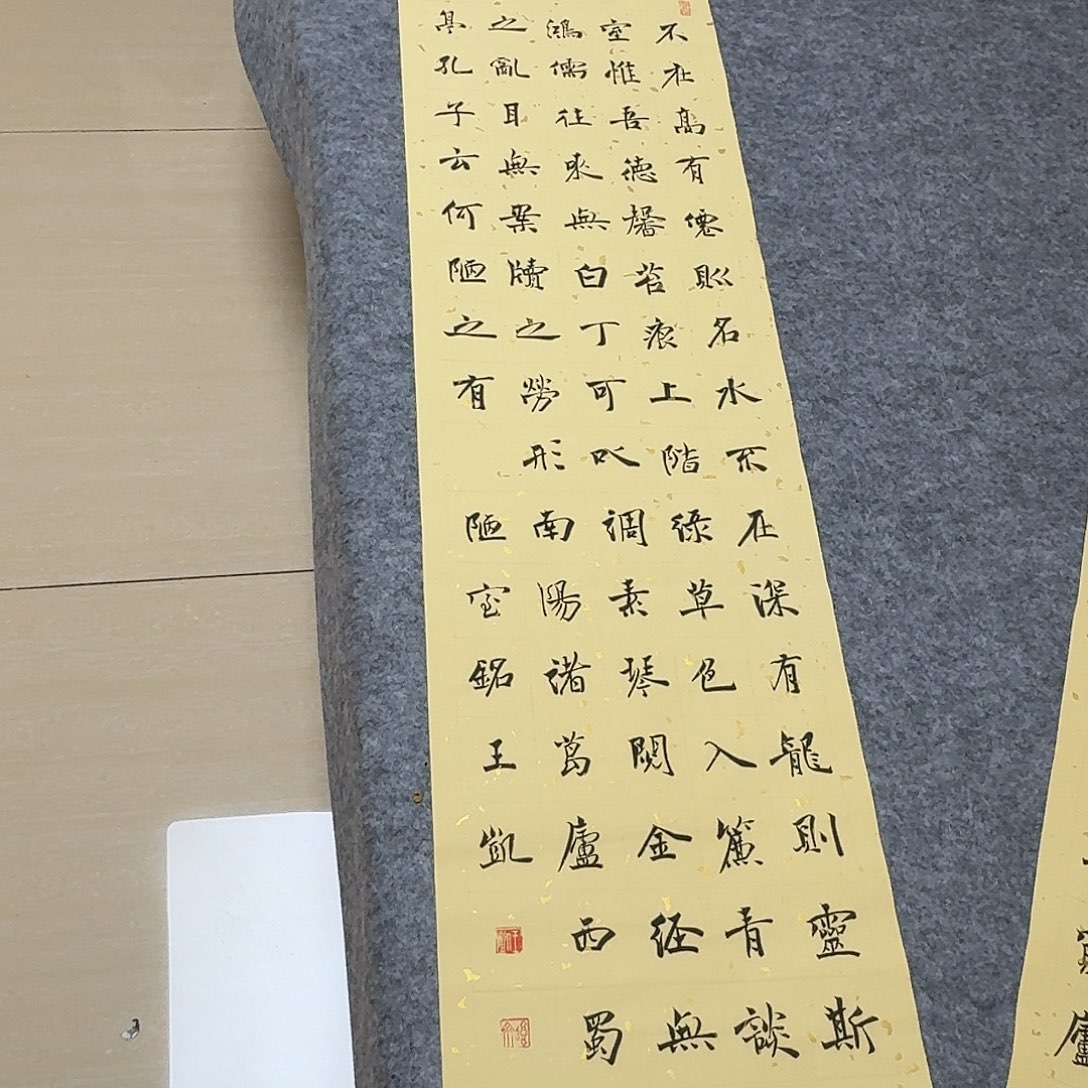 不在高有僊則名水不在深有龍則靈斯
室惟吾德馨苔痕上階綠草色入簾青談
鴻儒往來無白丁可以調素琴閱金經無
之亂耳無案牘之勞形南陽諸葛廬西蜀
亭孔子云何陋之有
陋室銘王凱